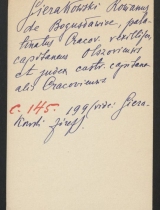 Sierakowski Romanus
de Bogusławice, pala-
tinatus Cracov. vexillifer,
capitaneus Olszoviensis
et judex castr. capitane-
alis Cracoviensis
c. 145. 199 (vide: Siera-
kowski Józef)